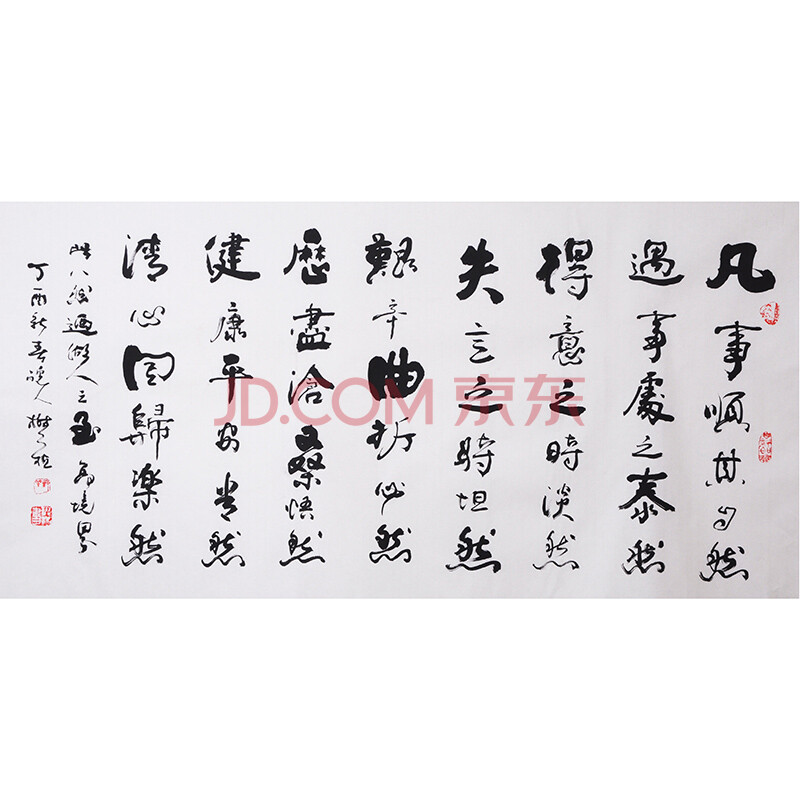 凡事順其自然
遇事處之泰然
得意之時淡然
失意之時坦然
艱辛曲折必然
歷盡滄桑悟然
健康平安當然
清心回歸樂然
此八然遁世人之至高境界
丁酉新春
JD.COM 京东